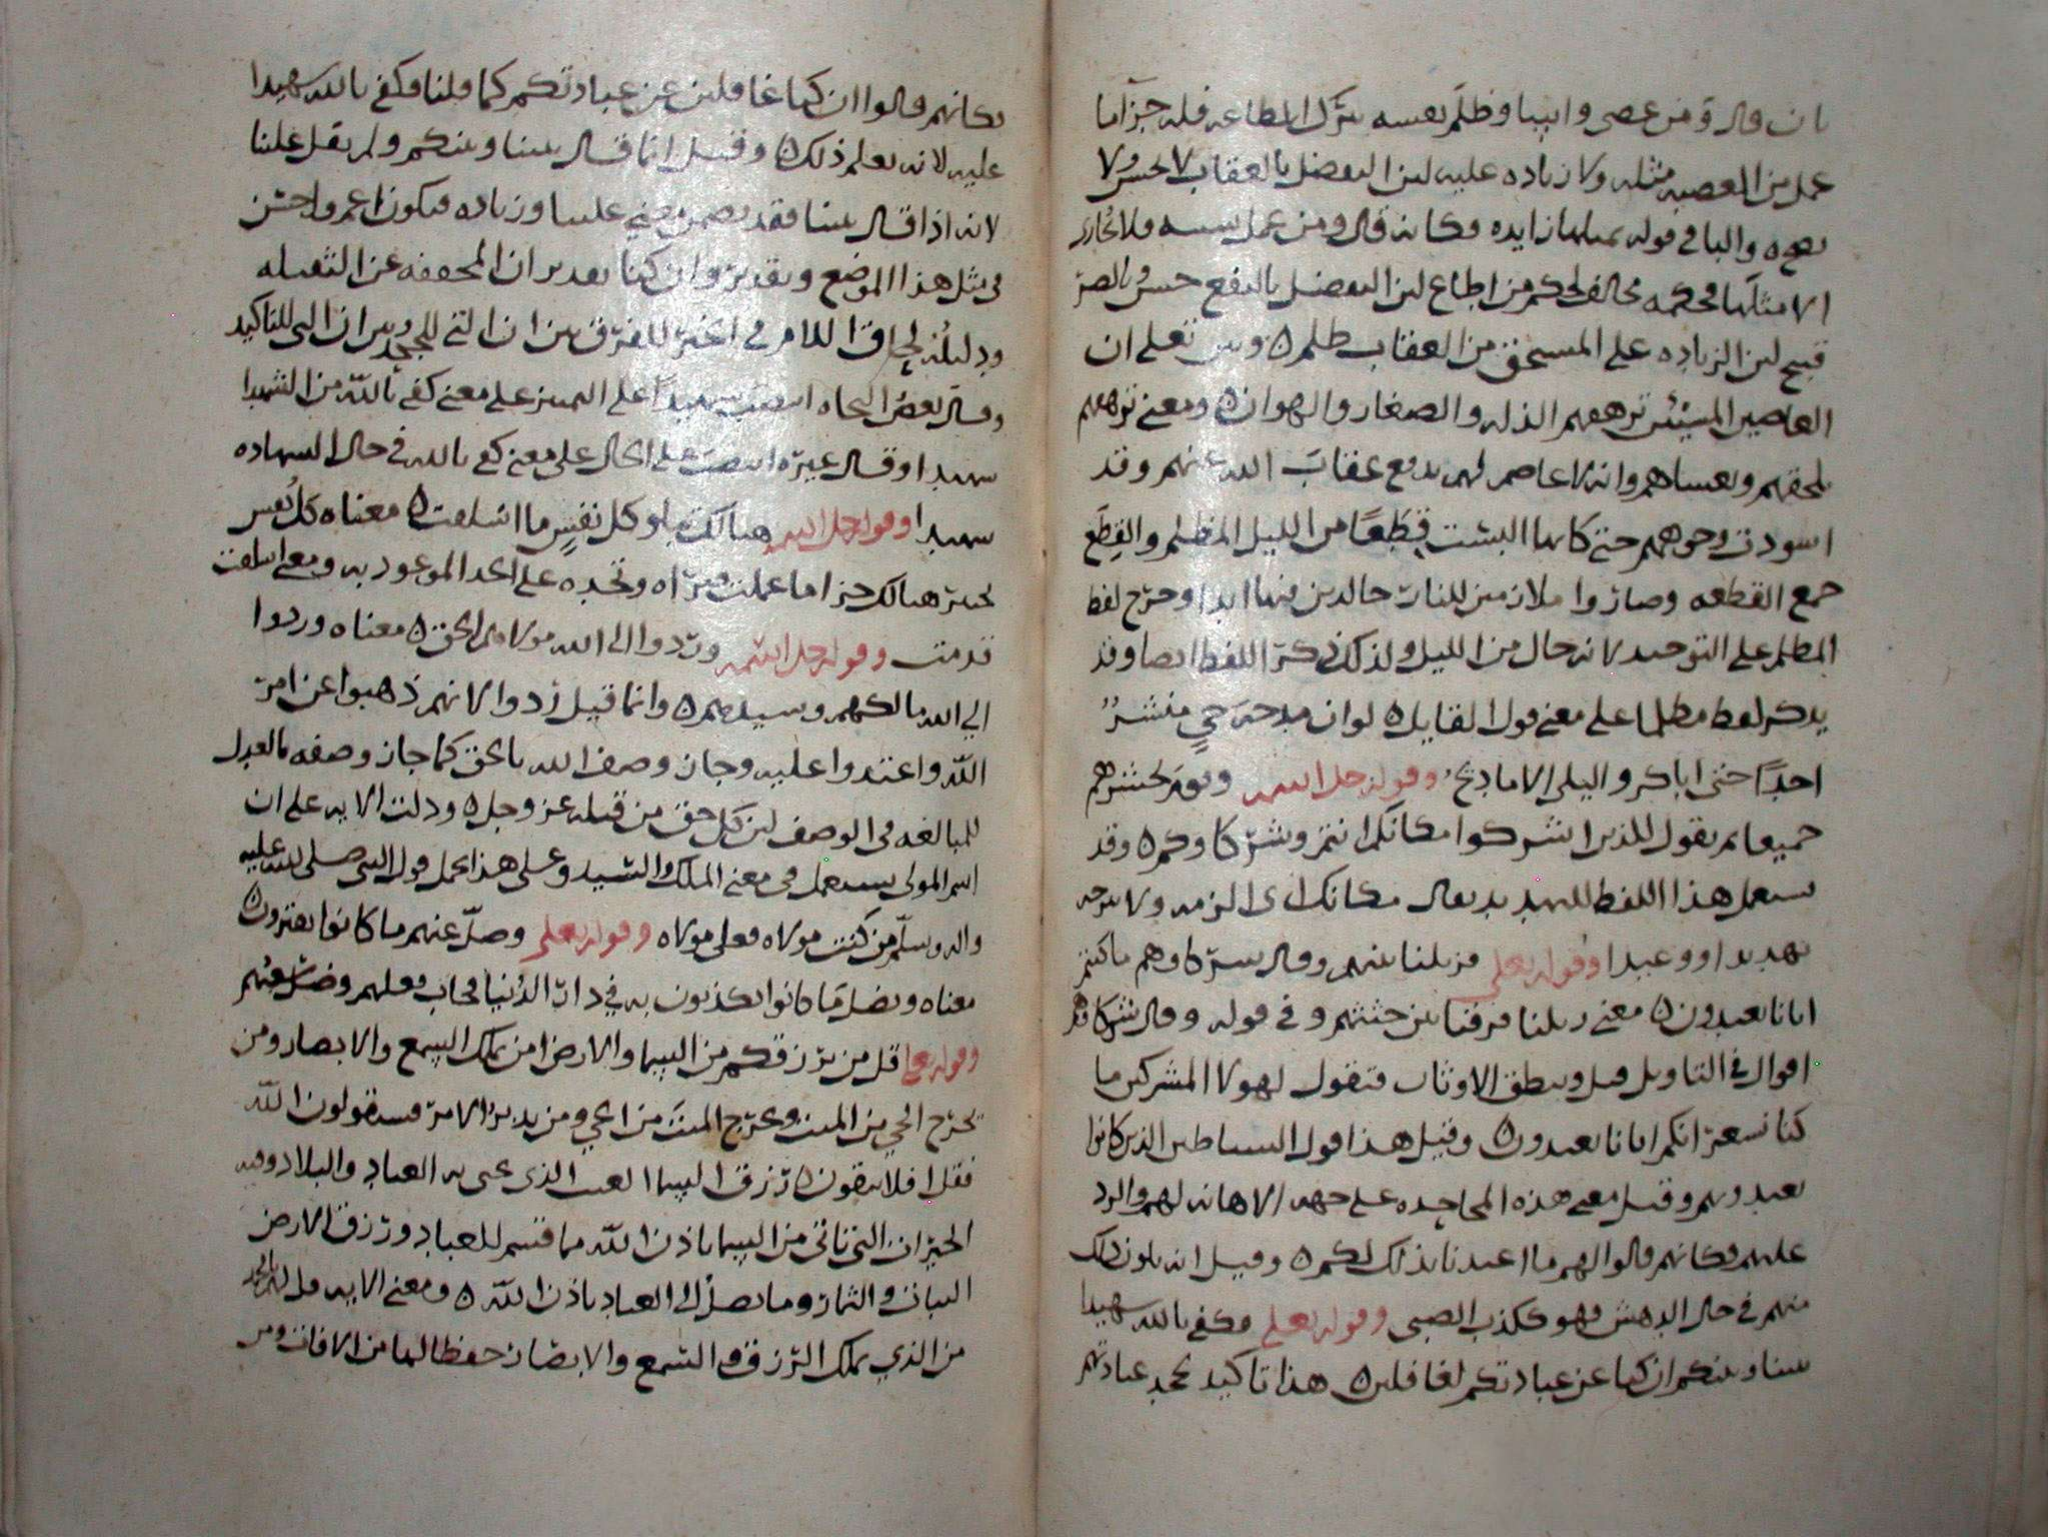 بان قال ومن عصى واسا وظلم نفسه بترك الطاعه فله جزآ ما
عمل من المعصيه مثله ولا زياده عليه لان التفضل بالعقاب لا يحسن ولا
والبا في قوله بمثلها زايده فكانه قال ومن عمل سيئه فلا يجازى
الا مثلها فحكمه مخالف لحكم من اطاع لان التفضل بالنفع حسن وبالضر
قبيح لان الزياده على المستحق من العقاب ظلم ٥ وبين تعلى ان
العاصين المسيئين ترهقهم الذله والصغار والهوان ٥ ومعنى ترهقهم
تلحقهم وتغشاهم وانه لا عاصم لهم يدفع عقاب الله عنهم وقد
اسودت وجوههم حتى كانما البست قِطَعًا من الليل المظلم والقِطَع
جمع القطعه وصاروا ملازمين للنار خالدين فيها ابدا وخرج لفظ
المظلم على التوحيد لانه حال من الليل ولذلك ذكر اللفظ ايضا وقد
يذكر لفظ مظلما على معنى قول القايل ٥ لو ان مدحة حيٍ منشرٌ
احدًا احيى اباكر واليلى الاماديح وقوله جل اسمه ويوم نحشرهم
جميعا ثم يقول للذين اشركوا مكانكم انتم وشركاوكم ٥ وقد
يستعمل هذا اللفظ للتهديد يقال مكانك اى الزمه ولا تبرحه
تهديدا ووعيدا وقوله تعلى فزيلنا بينهم وقال شركاوهم ما كنتم
ايانا تعبدون ٥ معنى زيلنا فرقنا بين جثثهم وفي قوله وقال شركاوهم
اقوال في التاويل قيل وينطق الاوثان فتقول لهولا المشركين ما
كنا نشعر انكم ايانا تعبدون ٥ وقيل هذا قول الشياطين الذين كانوا
يعبدونهم وقيل معنى هذه المجاحده على جهه الاهانه لهم والرد
عليهم فكانهم قالوا لهم ما اعتدنا بذلك لكم ٥ وقيل انه يكون ذلك
منهم في حال الدهش فهو ككذب الصبى وقوله تعلى فكفى بالله شهيدا
بيننا وبينكم ان كنا عن عبادتكم لغافلين ٥ هذا تاكيد لجحد عبادتهم
فكانهم قالوا ان كنا غافلين عن عبادتكم كما قلنا فكفى بالله شهيدا
عليه لانه يعلم ذلك ٥ وقيل انما قال بيننا وبينكم ولم يقل علينا
لانه اذا قال بيننا فقد تضمن معنى علينا وزياده فيكون اعم واحسن
في مثل هذا الموضع وتقدير وان كنا تقدير ان المخففه عن الثقيله
ودليله لحاق اللام في الخبر للفرق بين ان التي للجحد وبين ان التى للتاكيد
وقال بعض النحاه انتصب شهيدًا على التمييز على معنى كفى بالله من الشهدا
شهيدا وقال غيره انتصب على الحال على معنى كفى بالله في حال الشهاده
شهيدا وقوله جل اسمه هنالك تبلو كل نفسٍ ما اسلفت ٥ معناه كل نفس
تختبر هنالك جزا ما عملت فتراه وتجده على الحد الموعود به ومعنى اسلفت
قدمت وقوله جل اسمه وردوا الى الله مولاهم الحق ٥ معناه وردوا
الى الله مالكهم وسيدهم ٥ وانما قيل ردوا لانهم ذهبوا عن امر
الله واعتدوا عليه وجاز وصف الله بالحق كما جاز وصفه بالعدل
للمبالغه في الوصف لان كل حق من قبله عز وجل ٥ ودلت الايه على ان
اسم المولى يستعمل في معنى الملك والسيد وعلى هذا يحمل قول النبى صلى الله عليه
واله وسلم من كنت مولاه فعلى مولاه وقوله تعلى وضلّ عنهم ما كانوا يفترون ٥
معناه وبضل ما كانوا يكذبون به في دار الدنيا فخاب فعلهم وضل سعيهم
وقوله تعلى قل من يرزقكم من السما والارض امن يملك السمع والابصار ومن
يخرج الحي من الميت ويخرج الميت من الحي ومن يدبر الامر فسيقولون الله
فقل افلا تتقون ٥ رزق السما الغيث الذى يحيى به العباد والبلاد
الخيرات التي تاتى من السما باذن الله مما قسم للعباد ورزق الارض
النبات والثمار وما يصل الى العباد باذن الله ٥ ومعنى الايه قل لهم يا محمد
من الذي يملك الرزق والسمع والابصار حفظا لها من الافات ومن